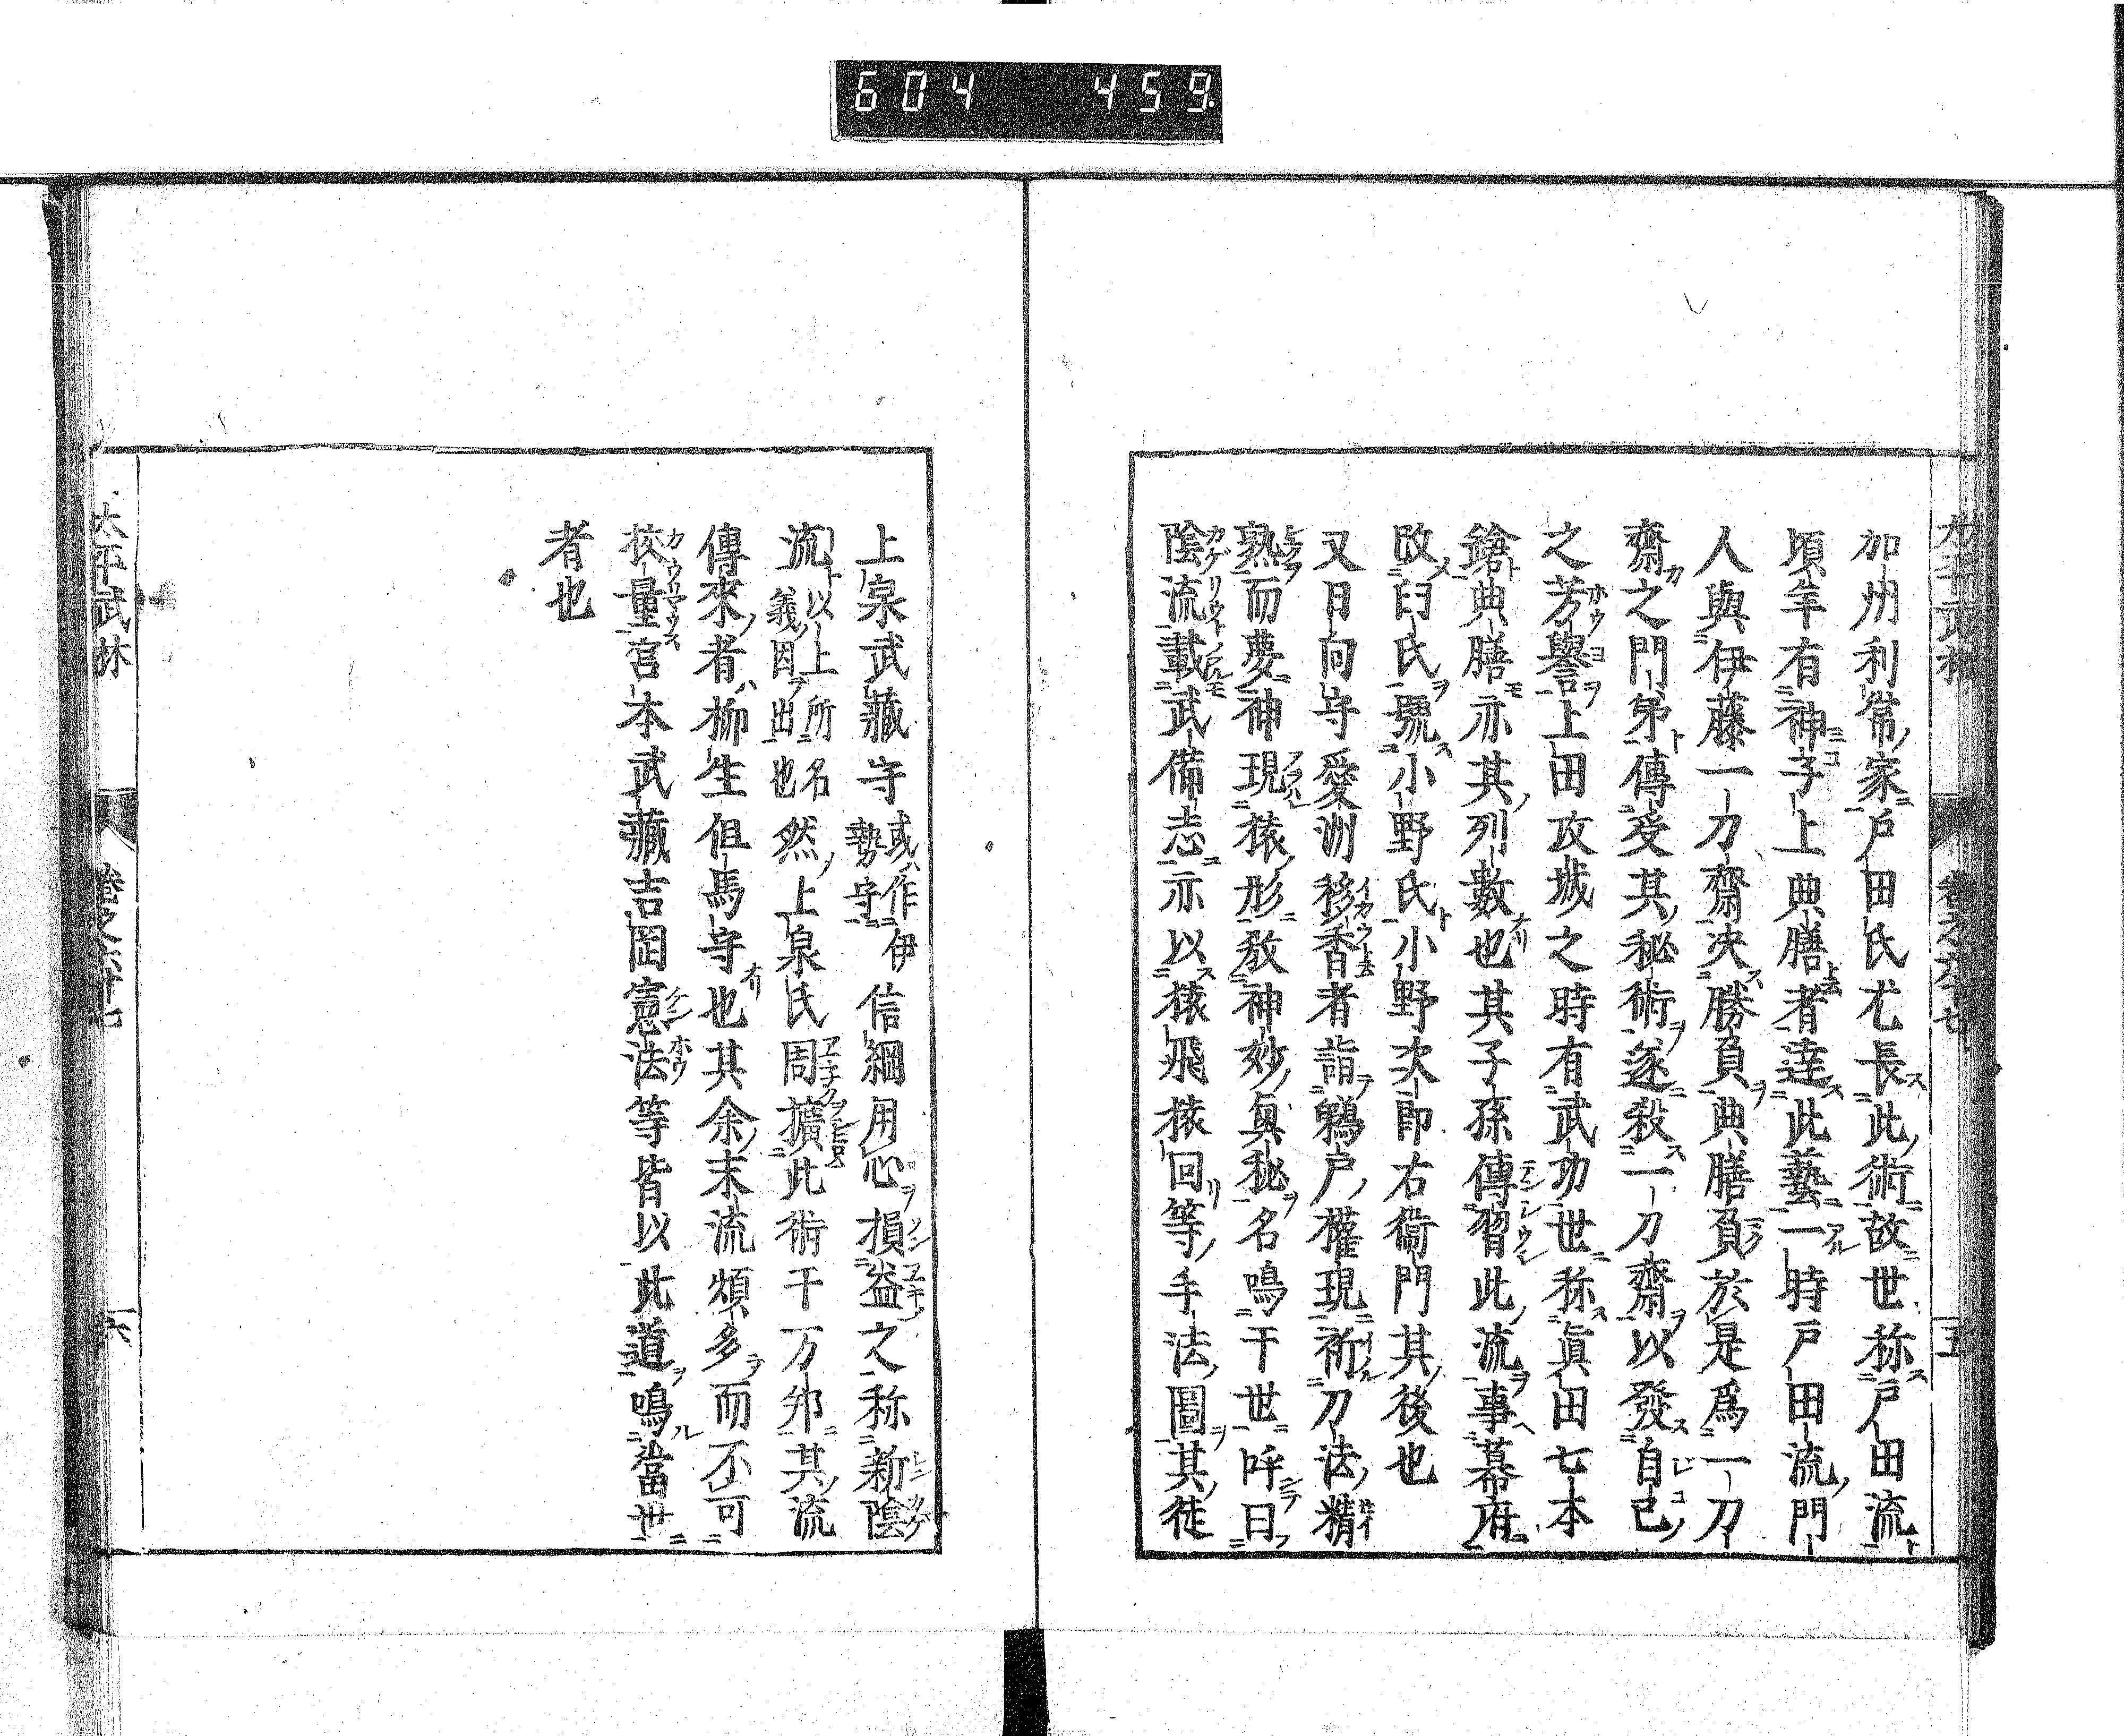 604 459
加州利常家戸田氏尤長此術故世称戸田流
頃年有神子上典膳者達此藝一時戸田流門
人與伊藤一刀齋决勝負典膳負於是爲一刀
齋之門弟傳受其秘術遂殺一刀齋以發自己
之芳譽上田攻城之時有武功世称眞田七本
鎗典膳亦其列數也其子孫傳習此流事幕府
改臼氏號小野氏小野次郎右衞門其後也
又日向守愛洲移香者詣鵜戸權現祈刀法精
熟而夢神現猿形教神妙奥秘名鳴于世呼曰
陰流載武備志亦以猿飛猿回等手法圖其徒
上泉武藏守或作伊勢守信綱用心損益之称新陰
流以上所名義因出也然上泉氏周擴此術于万邦其流
傳來者柳生但馬守也其余末流頗多而不可
校量宮本武藏吉岡憲法等皆以此道鳴當世
者也
大平武林 卷之六十七 六